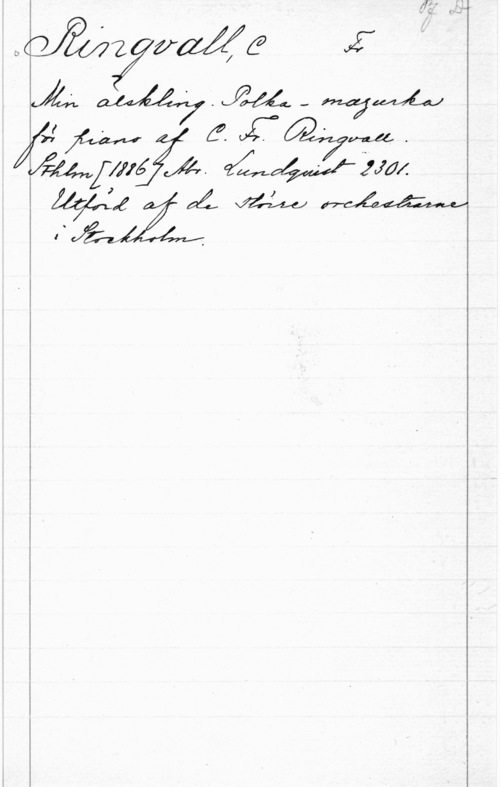 Pf D
Ringvall, C Fr
Min älskling. Polka-mazurka
för piano af C. Fr. Ringvall.
Sthlm [1886] Abr. Lundquist 2301.
Utförd af de större orchestrarne
i Stockholm.